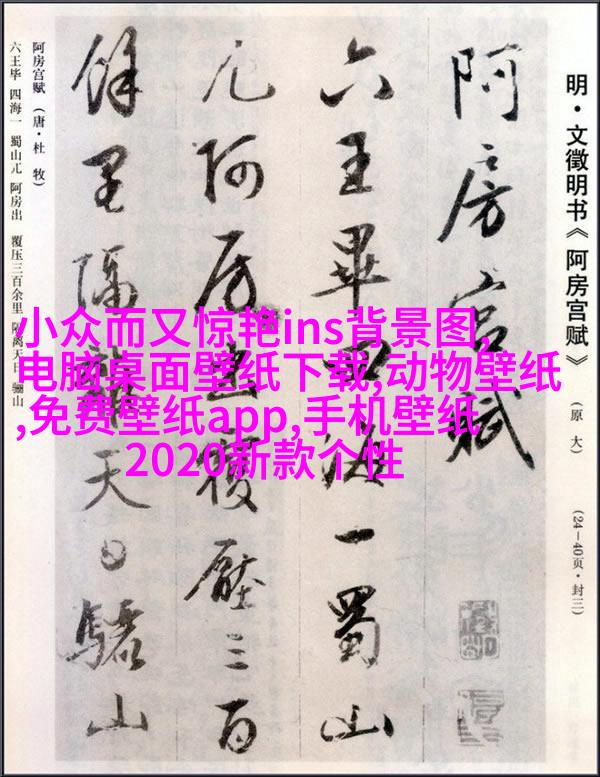 明·文徵明书《阿房宫赋》
(原大)
(24—40页·封三)
阿房宮賦
六王畢四海一蜀山
兀阿房出覆壓三百
餘里隔離天日驪山
阿房宫赋(唐·杜牧)
六王毕 四海一 蜀山兀 阿房出 覆压三百余里 隔离天日 骊山
小众而又惊艳ins背景图,
电脑桌面壁纸下载,动物壁纸
,免费壁纸app,手机壁纸
2020新款个性